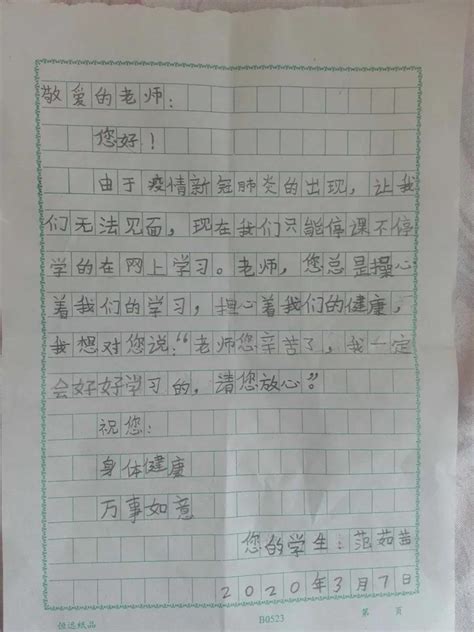 敬爱的老师：
您好！
由于疫情新冠肺炎的出现，让我
们无法见面，现在我们只能停课不停
学的在网上学习。老师，您总是操心
着我们的学习，担心着我们的健康，
我想对您说：“老师您辛苦了，我一定
会好好学习的，请您放心。”
祝您：
身体健康
万事如意
您的学生：范茹茜
2020年3月7日
恒远纸品 B0523 第 页